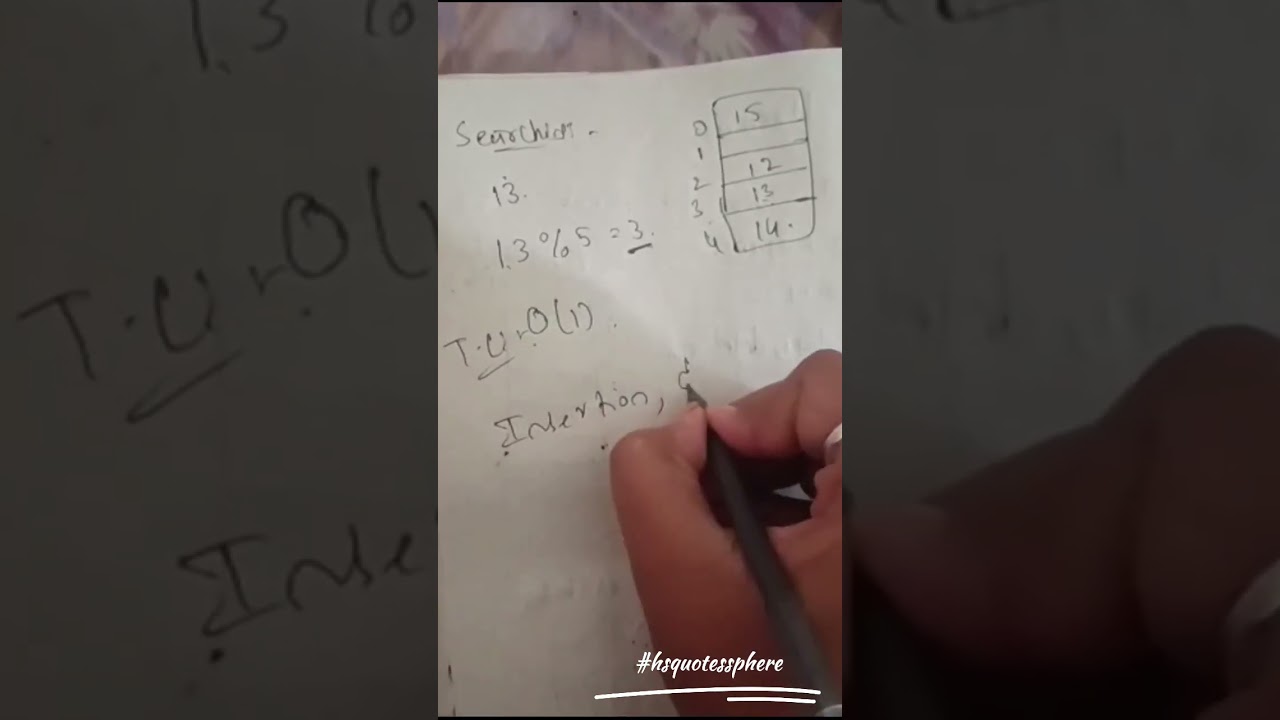 Searching -
0 15
1
2 12
3 13
4 14.
13.
13%5 = 3.
T.C - O(1).
Insertion,
#hsquotessphere